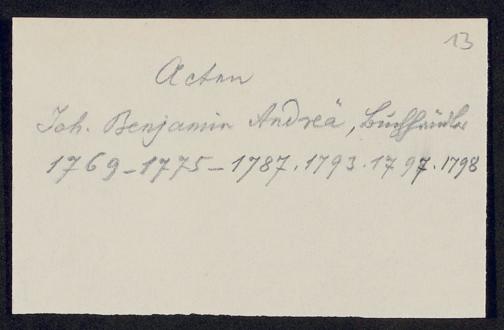 13
Acten
Joh. Benjamin Andreä, Buchhändler
1769-1775-1787.1793.1797.1798